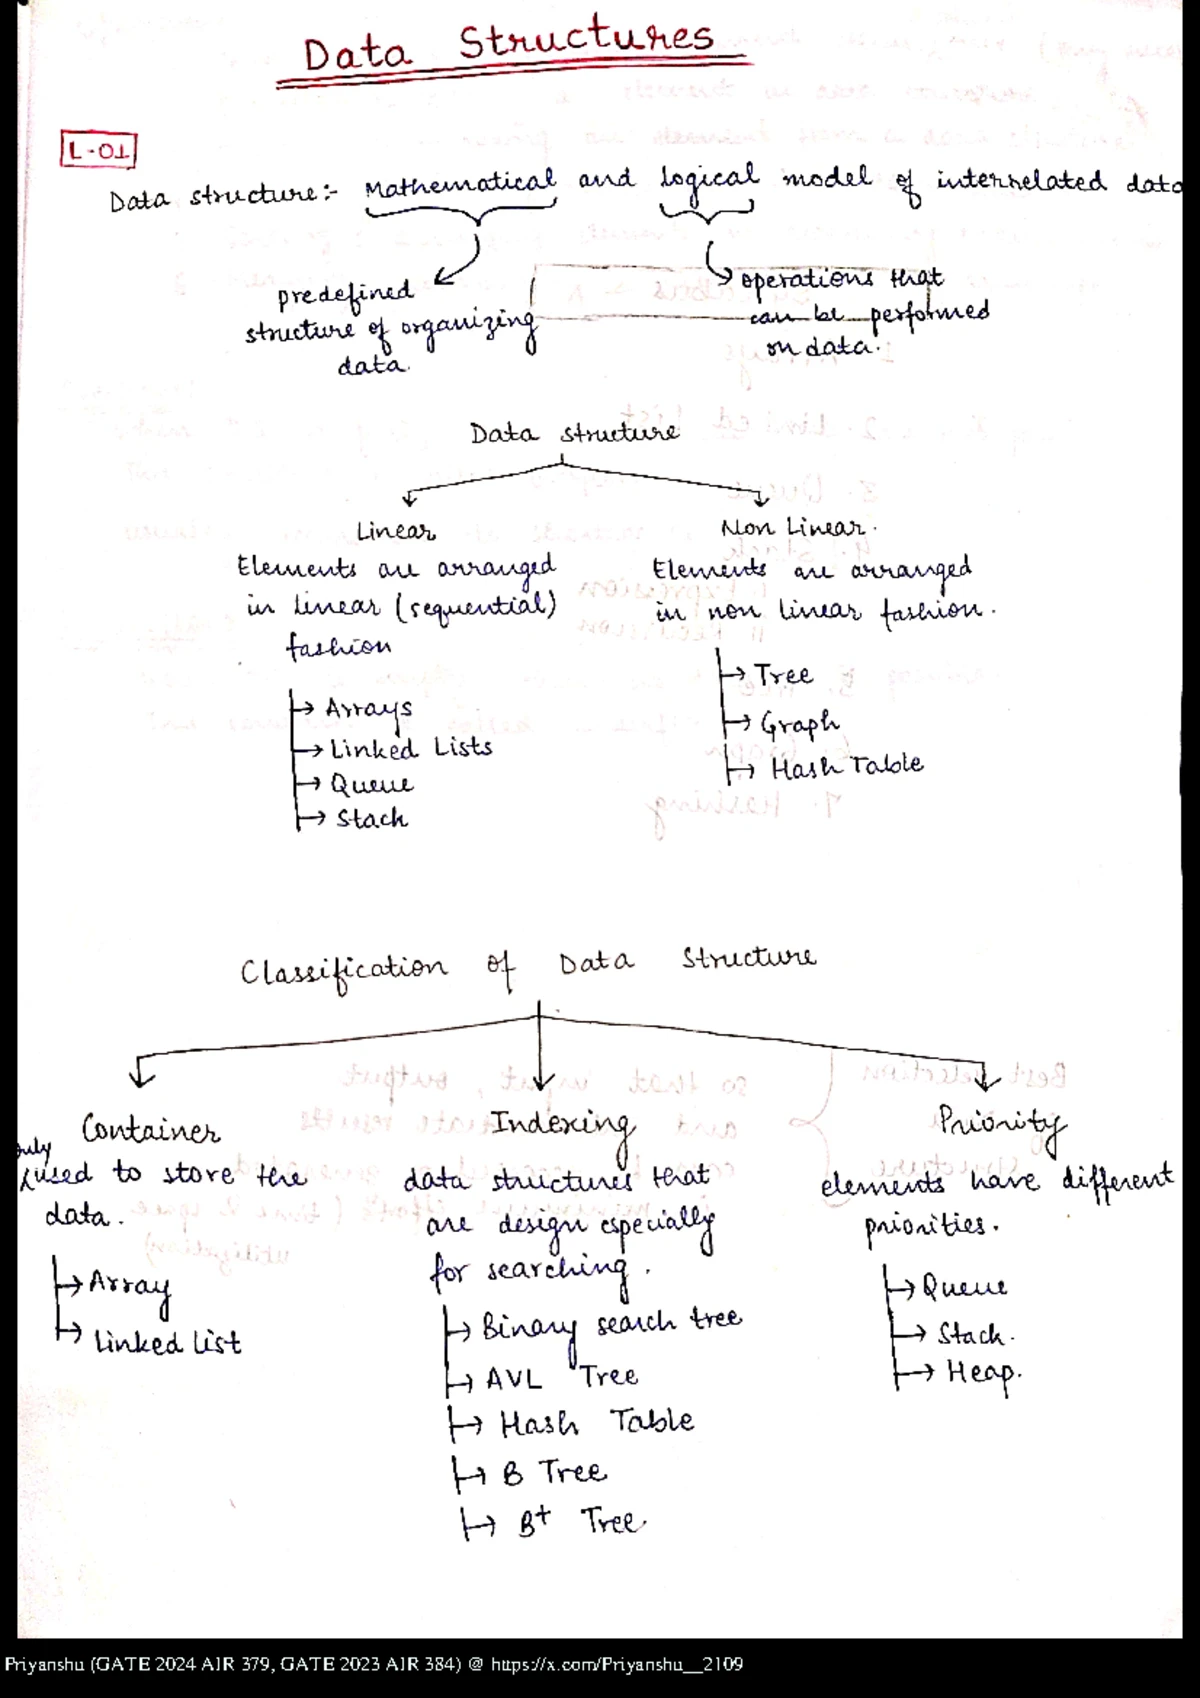 Data Structures
L-01
Data structure:- Mathematical and logical model of interrelated data
predefined
structure of organizing
data.
operations that
can be performed
on data.
Data structure
Linear
Elements are arranged
in linear (sequential)
fashion
→ Arrays
→ Linked Lists
→ Queue
→ Stack
Non Linear.
Elements are arranged
in non linear fashion.
→ Tree
→ Graph
→ Hash Table
Classification of Data Structure
Container
used to store the
data.
→ Array
→ Linked list
Indexing
data structures that
are design especially
for searching.
→ Binary search tree
→ AVL Tree
→ Hash Table
→ B Tree
→ B+ Tree
Priority
elements have different
priorities.
→ Queue
→ Stack.
→ Heap.
Priyanshu (GATE 2024 AIR 379, GATE 2023 AIR 384) @ https://x.com/Priyanshu__2109